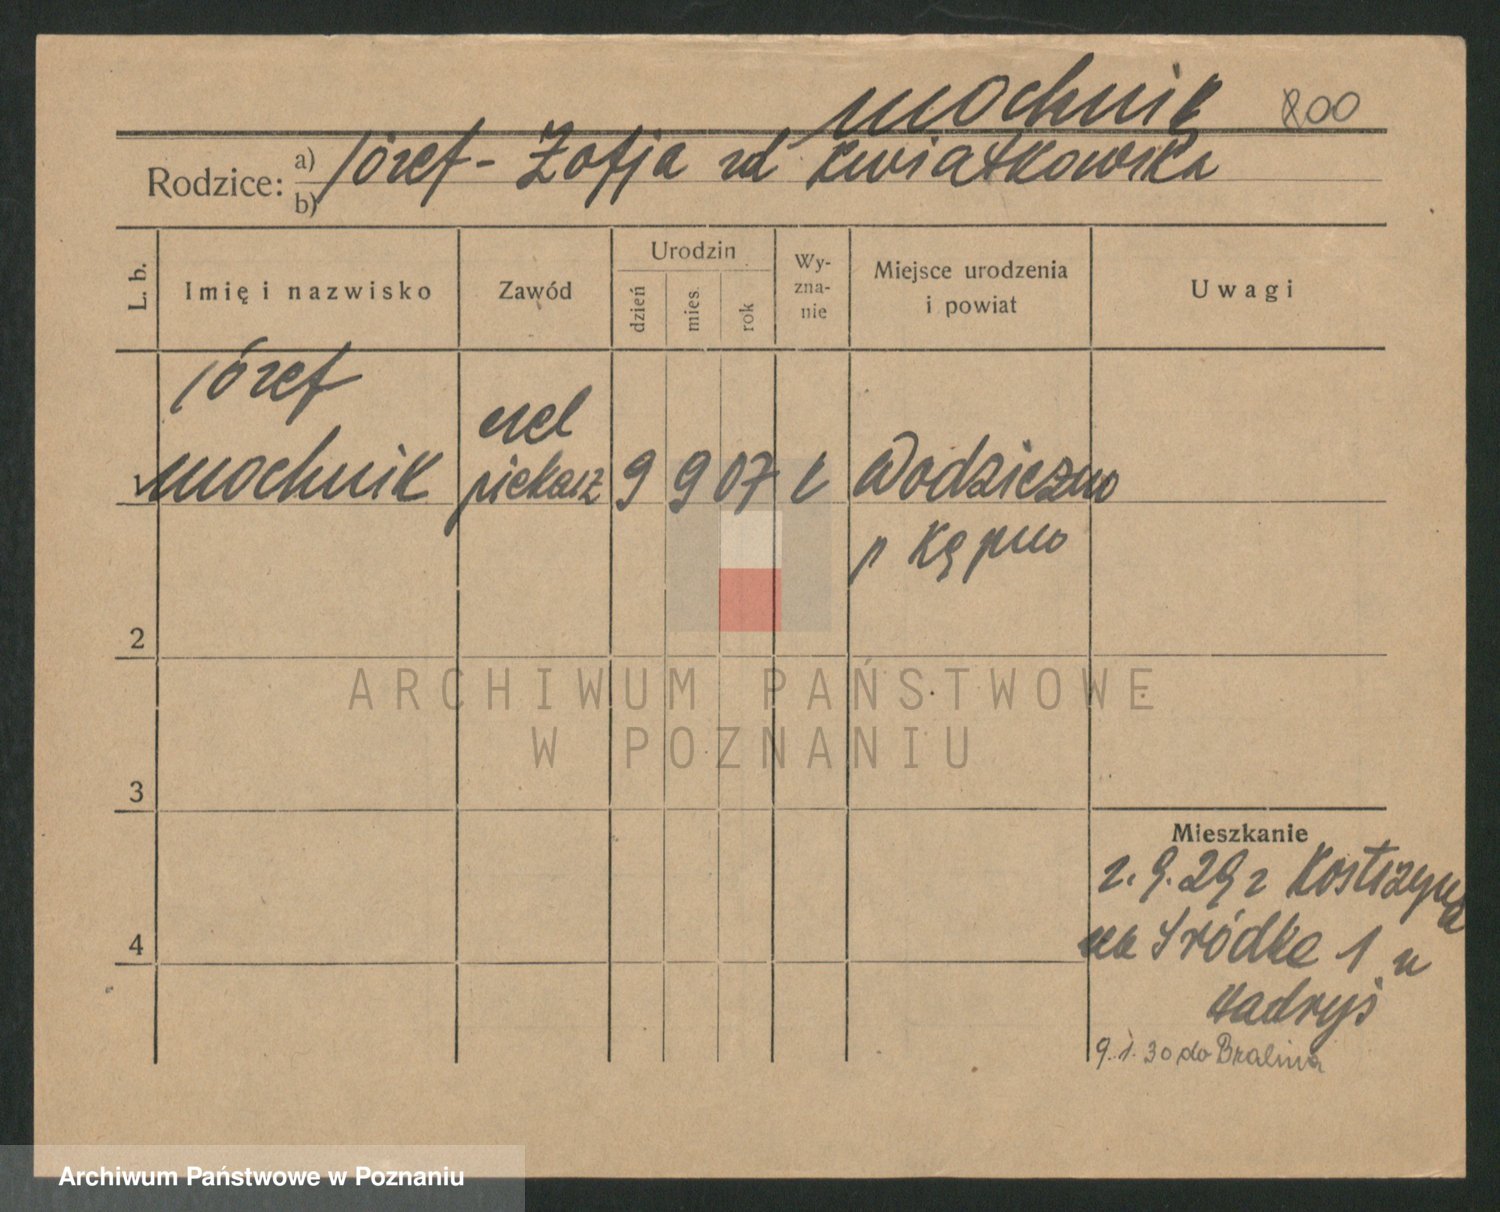 Mochnik 800
Rodzice: a) Józef - Zofja zd Kwiatkowska
b)
L. b. Imię i nazwisko Zawód Urodzin dzień mies. rok Wyznanie Miejsce urodzenia i powiat Uwagi
Józef
czel
1 Mochnik piekarz 9 9 07 k Wodziczno
p Kępno
2
ARCHIWUM PAŃSTWOWE
W POZNANIU
3
Mieszkanie
2.9.29 z Kostrzyna
4
na Śródke 1 u
9.1.30 do Bralina
Archiwum Państwowe w Poznaniu